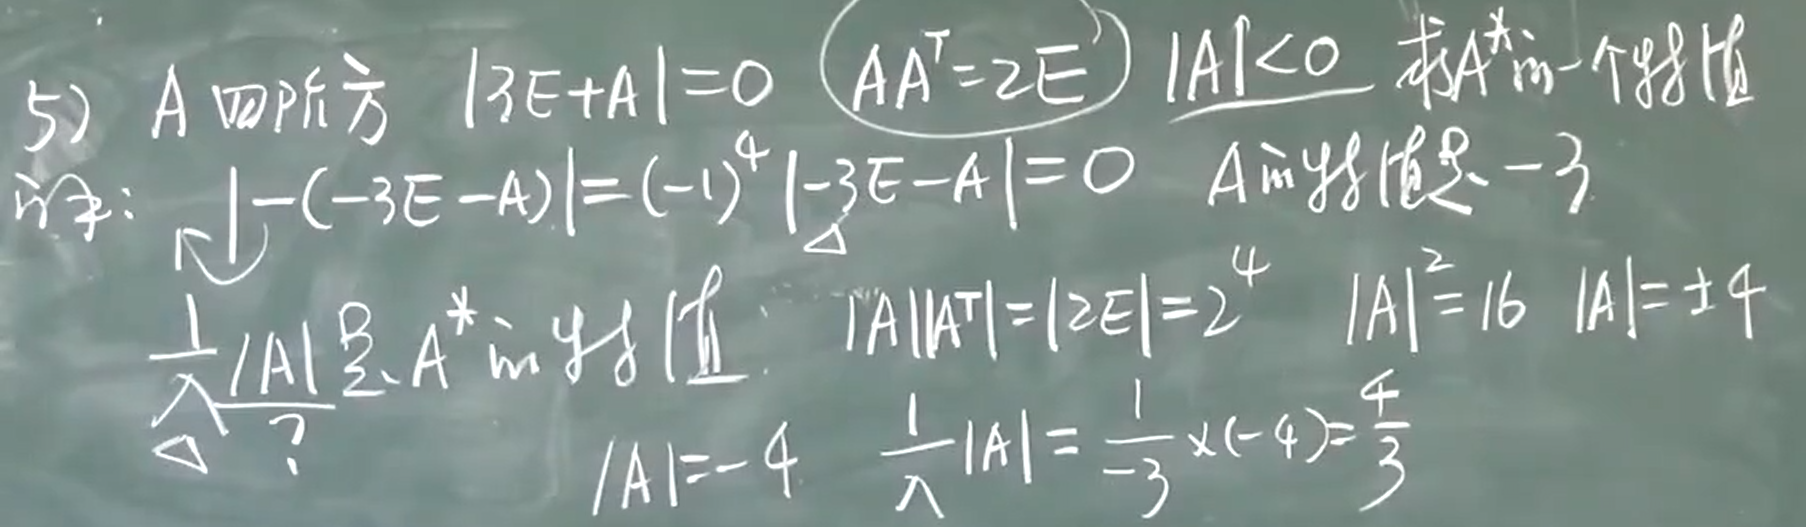 5) A 四阶方 |3E+A|=0 (AAᵀ=2E) |A|<0 求A*的一个特值
证: |-(-3E-A)|=(-1)⁴|-3E-A|=0 A的特值是-3
1/λ|A|是A*的特值. |A||Aᵀ|=|2E|=2⁴ |A|²=16 |A|=±4
?
|A|=-4 1/λ|A|=1/-3×(-4)=4/3